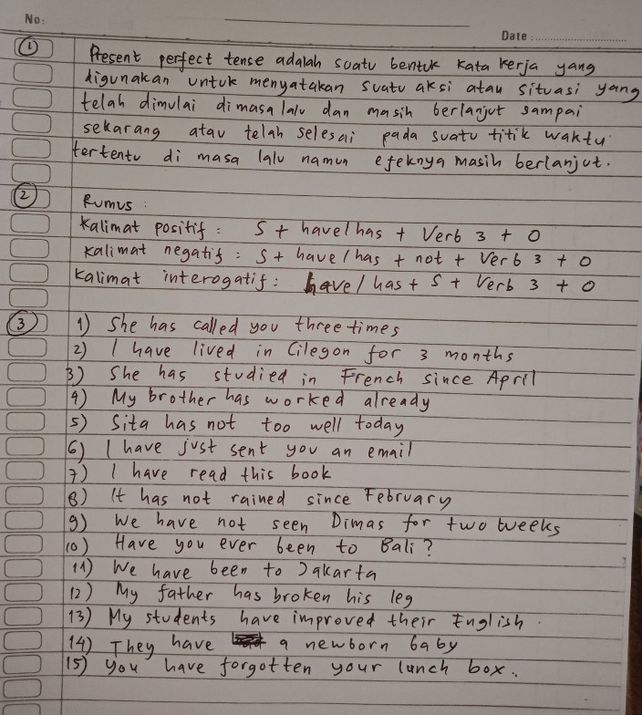 No:
Date :
1 Present perfect tense adalah suatu bentuk kata kerja yang
digunakan untuk menyatakan suatu aksi atau situasi yang
telah dimulai dimasa lalu dan masih berlanjut sampai
sekarang atau telah selesai pada suatu titik waktu
tertentu di masa lalu namun efeknya masih berlanjut.
2 Rumus :
Kalimat positif : S + have/has + Verb 3 + O
Kalimat negatif : S + have/has + not + Verb 3 + O
Kalimat interogatif : have/has + S + Verb 3 + O
3 1) She has called you three times
2) I have lived in Cilegon for 3 months
3) She has studied in French since April
4) My brother has worked already
5) Sita has not too well today
6) I have just sent you an email
7) I have read this book
8) It has not rained since February
9) We have not seen Dimas for two weeks
10) Have you ever been to Bali?
11) We have been to Jakarta
12) My father has broken his leg
13) My students have improved their English.
14) They have a newborn baby
15) You have forgotten your lunch box..